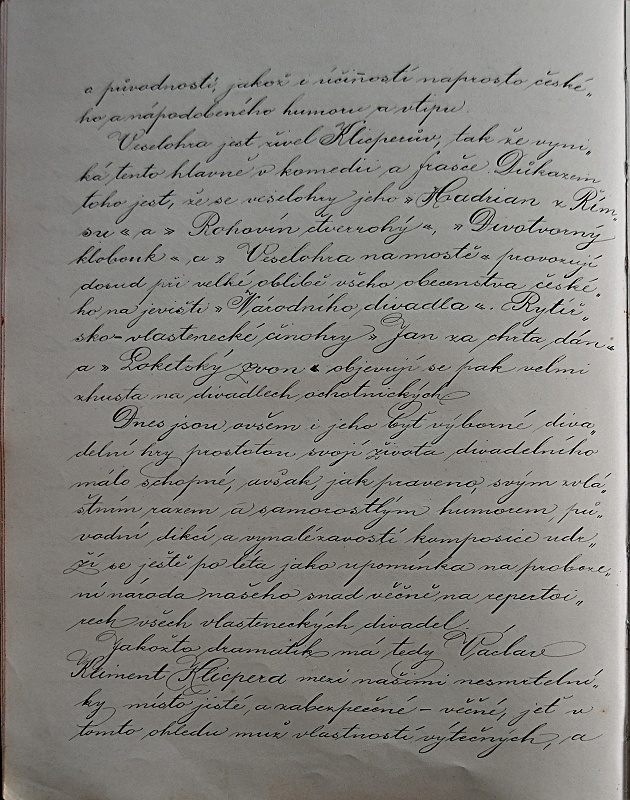 a původností, jakož i účinností naprosto české„
ho a nápodobeného humoru a vtipu.
Veselohra jest živel Klicperův, tak že vyni„
ká tento hlavně v komedii a frašce. Důkazem
toho jest, že se veselohry jeho » Hadrian z Řím„
su « a » Rohovín čtverrohý «, » Divotvorný
klobouk « a » Veselohra na mostě « provozují
dosud při velké oblibě všeho obecenstva české„
ho na jevišti » Národního divadla «. Rytíř„
sko-vlastenecké činohry » Jan za chrta dán «
a » Loketský zvon « objevují se pak velmi
zhusta na divadlech ochotnických.
Dnes jsou ovšem i jeho byť výborné diva„
delní hry prostotou svojí života divadelního
málo schopné, avšak jak praveno, svým zvlá„
štním razem a samorostlým humorem, pů„
vodní dikcí a vynalézavostí komposice udr„
ží se ještě po léta jako upomínka na probuze„
ní národa našeho snad věčně na repertoi„
rech všech vlasteneckých divadel.
Jakožto dramatik má tedy Václav
Kliment Klicpera mezi našimi nesmrtelní„
ky místo jisté, a zabezpečené – věčné, jeť v
tomto ohledu muž vlastností výtečných, a